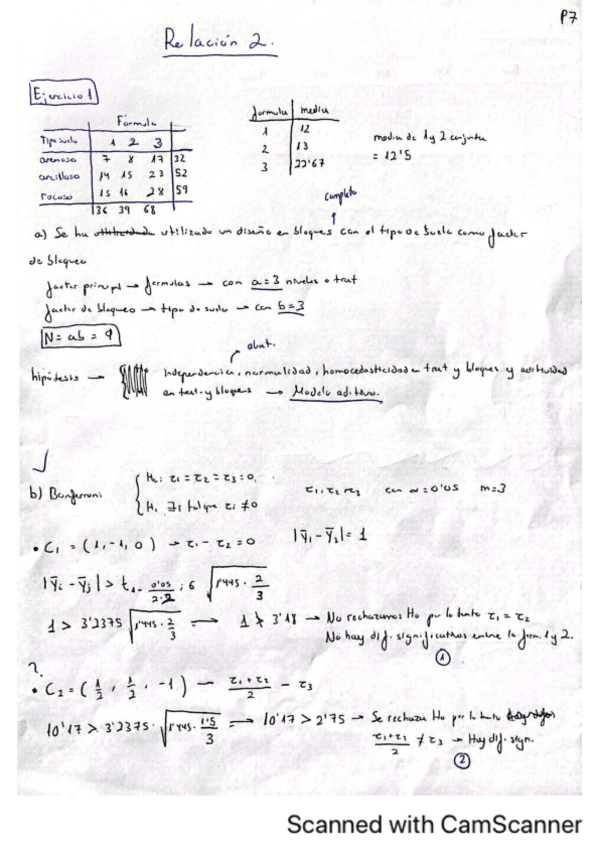 P7
Relación 2.
Ejercicio 1
Fórmula
Tipo suelo 1 2 3
arenoso 7 8 17 32
arcilloso 14 15 23 52
rocoso 15 16 28 59
36 39 68
formula media
1 12
2 13
3 22'67
media de 1 y 2 conjunta
= 12'5
completo
a) Se ha utilizado un diseño en bloques con el tipo de suelo como factor
de bloqueo
factor principal → formulas → con a=3 niveles o trat
factor de bloqueo → tipo de suelo → con b=3
N = ab = 9
hipótesis → Independencia, normalidad, homocedasticidad en trat y bloques y aditividad
en trat. y bloques → Modelo aditivo.
b) Bonferroni
H₀: τ₁ = τ₂ = τ₃ = 0
H₁ ∃i tal que τi ≠ 0
con α = 0'05 m=3
• C₁ = (1, -1, 0) → τ₁ - τ₂ = 0 |ȳ₁ - ȳ₂| = 1
1 > 3'2375 √1'445 · 2/3 ⟹ 1 ≯ 3'18 → No rechazamos H₀ por lo tanto τ₁ = τ₂
No hay dif. significativas entre la form. 1 y 2.
①
?
• C₂ = (1/2, 1/2, -1) — (τ₁ + τ₂)/2 - τ₃
10'17 > 3'2375 · √1'445 · 1'5/3 ⟹ 10'17 > 2'75 → Se rechaza H₀ por lo tanto
(τ₁ + τ₂)/2 ≠ τ₃ → Hay dif. sign.
②
Scanned with CamScanner